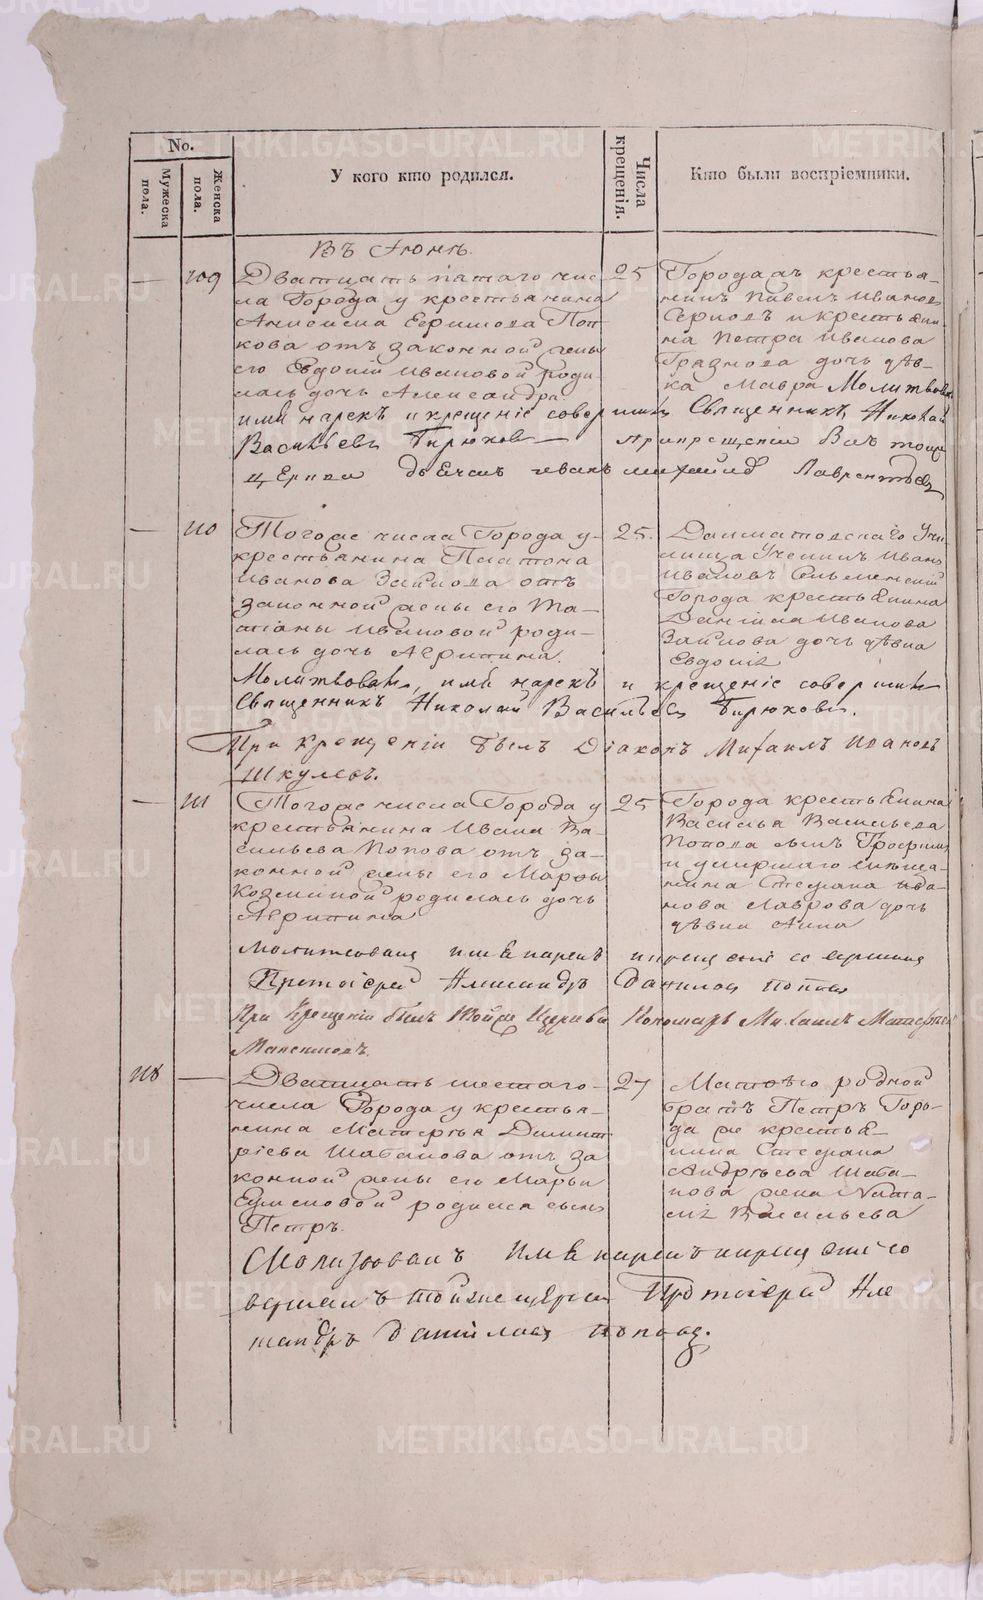 No.
Мужеска пола.
Женска пола.
У кого кто родился.
Числа крещенія.
Кто были воспріемники.
Въ Іюнѣ.
109
Дватцать пятаго чис-
ла Города у крестьянина
Ефимова Поп-
кова отъ законной жены
его Евдокіи Ивановой роди-
лась дочь Александра.
25
Города жъ крестья-
нинъ Павелъ Ивановъ
и крестьяни-
на Петра Иванова
дочь дѣв-
ка Мавра Молитвовалъ
имя нарекъ и крещеніе совершилъ Священникъ Николай
Васильевъ Бирюковъ При крещеніи былъ тоя
церкви дьячекъ Лаврентьевъ
110
Тогоже числа Города у
крестьянина Платона
Иванова Зайкова отъ
законной жены его Та-
тіаны Ивановой роди-
лась дочь Агрипина.
25.
Далматовскаго Учи-
лища Ученикъ Иванъ
Ивановъ
Города крестьянина
Даніила Иванова
Зайкова дочь дѣвка
Евдокія
Молитвовалъ, имя нарекъ и крещеніе совершилъ
Священникъ Николай Васильевъ Бирюковъ.
При крещеніи былъ Діаконъ Михаилъ Ивановъ
Шкулевъ.
111
Тогоже числа Города у
крестьянина Ивана Ва-
сильева Попова отъ за-
конной жены его Марфы
Козминой родилась дочь
Агрипина
25
Города крестьянина
Василья Васильева
Попова сынъ
и умершаго мѣща-
нина Стефана Ива-
нова Лаврова дочь
дѣвка Анна
Молитвовалъ имя нарекъ и крещеніе совершилъ
Протоіерей Александръ Даниловъ Поповъ
При Крещеніи былъ Тойже Церкви Пономарь Михаилъ
Максимовъ.
118
Дватцать шестаго
числа Города у крестья-
нина Матвея Димит
ріева Шабанова отъ за
конной жены его Марьи
родился сынъ
Петръ.
27
родной
братъ Петръ Горо-
да же крестья-
нина Стефана
Андрѣева Шаба-
нова жена Ната-
лія Васильева
Молитвовалъ имя нарекъ и крещеніе со
вершилъ тойже церкви Протоіерей Але
ксандръ Даниловъ Поповъ.
METRIKI.GASO-URAL.RU